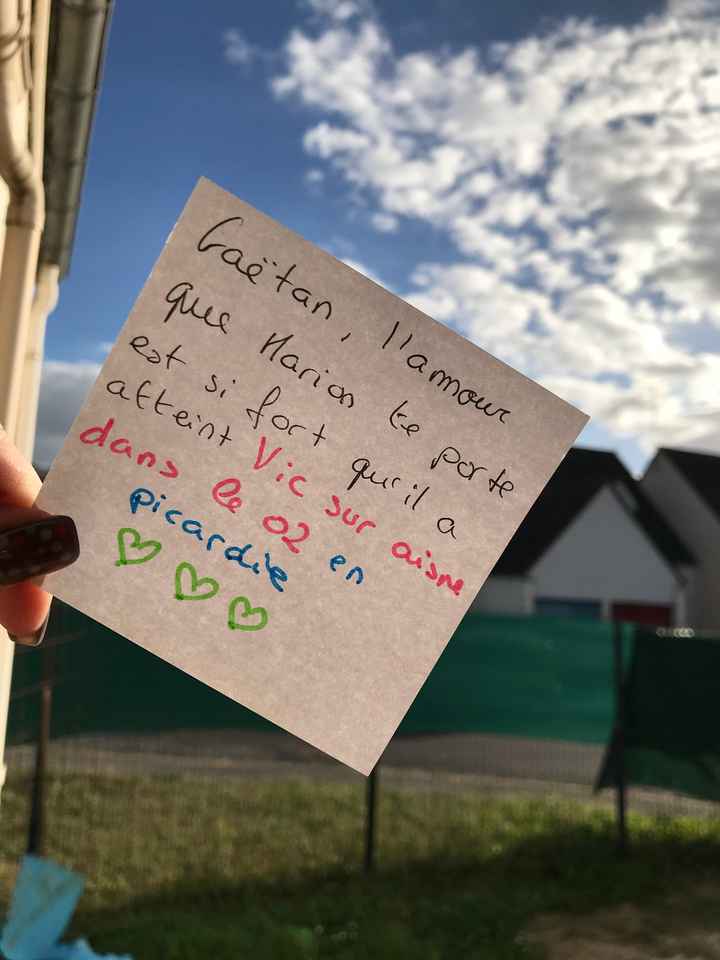 Gaëtan, l'amour
que Marion te porte
est si fort qu'il a
atteint Vic sur aisne
dans le 02 en
picardie